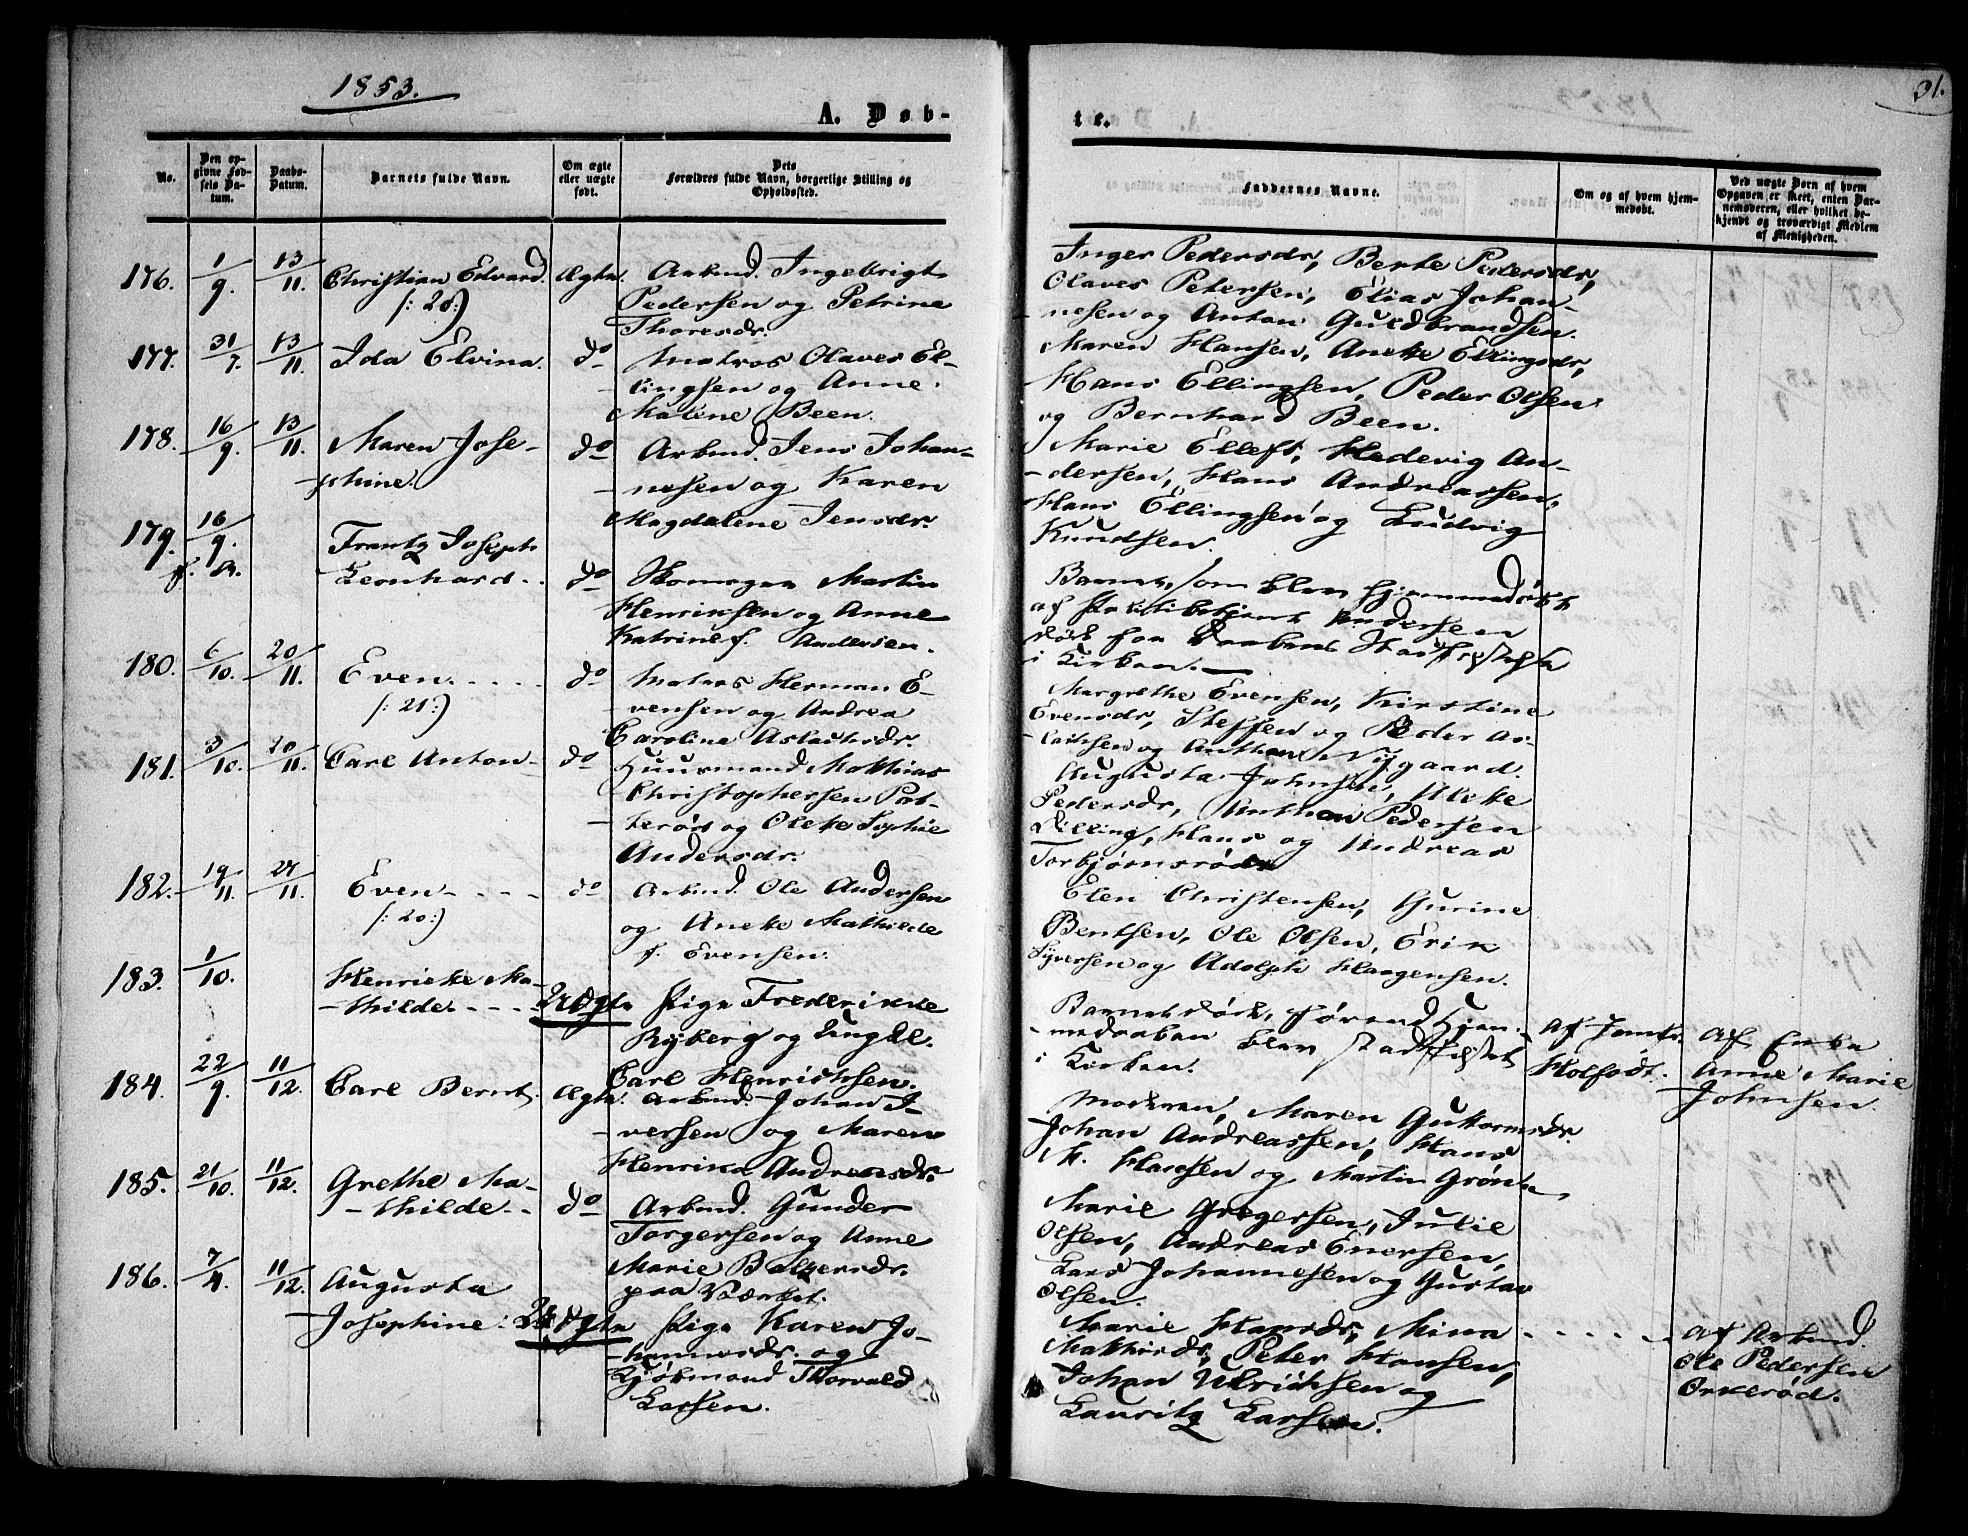 1853.
31.
A. Døb-
te.
No.
Den op-
givne Fød-
sels Da-
tum.
Daabs-
Datum.
Barnets fulde Navn.
Om ægte
eller uægte
født.
Dets
Forældres fulde Navn, borgerlige Stilling og
Opholdssted.
Faddernes Navne.
Om og af hvem hjem-
medøbt.
Ved uægte Børn af hvem
Opgaven er skeet, enten Bar-
nemoderen, eller hvilket be-
kjendt og troværdigt Medlem
af Menigheden.
176. 1/9. 13/11. Christian Edvard. Ægte. Arbmd. Ingebrigt
/: 20:) Pedersen og Petrine
Thoresdr.
Inger Pedersdr, Berte Pedersdr,
Olaves Petersen, Elias Johan-
nesen og Anton Guldbrandsen.
177. 31/7. 13/11. Ida Elvina. do Matros Olaves El-
lingsen og Anne
Malene Been.
Maren Hansen, Anette Ellingsdr,
Hans Ellingsen, Peder Olsen
og Bernhard Been.
178. 16/9. 13/11. Maren Jose- do Arbmd. Jens Johan-
-phine. nesen og Karen
Magdalene Jensdr.
Marie Ellefs, Hedevig An-
dersen, Hans Andreassen,
Hans Ellingsen og Ludvig
Knudsen.
179. 16/9. Frantz Joseph
f. A. Leonhard. do Skomager Martin
Henriksen og Anne
Katrine f. Andersen.
Barnet, som blev hjemmedøbt
af Andersen
døde før Daabens Stadfæstelse
i Kirken.
180. 6/10. 20/11. Even. do Matros Herman E-
/: 21:) vensen og Andrea
Caroline Aslachsdr.
Margrethe Evensen, Kirstine
Evensdr, Steffen og Peder As-
lachsen og Anthon Nygaard.
181. 3/10. 20/11. Carl Anton do Huusmand Mathias
Christophersen Pat-
terød og Olette Sophie
Andersdr.
Augusta Johnsen, Olette
Pedersdr, Anthon Pedersen
Dilling, Hans og Andreas
Torbjørnsrød
182. 19/11. 27/11. Even do Arbmd. Ole Andersen
/: 20:) og Anette Mathilde
f. Evensen.
Elen Christensen, Gurine
Bentsen, Ole Olsen, Erik
Syversen og Adolph Haagensen.
183. 1/10. Henriette Ma-
-thilde. Uægte Pige Frederikke
Ryberg og Ungkl.
Carl Henrichsen.
Barnet døde, førend Hjem-
medaaben blev stadfæstet
i Kirken.
af Jomfr.
Holfodt.
af Enke
Anne Marie
Johnsen.
184. 22/9. 11/12. Carl Bernt. Ægte. Arbmd. Johan I-
versen og Maren
Henrikke Andreasdr.
Moderen, Maren Guttormsdr.
Johan Andreassen, Hans
M. Hansen og Martin Grønn
185. 21/10. 11/12. Grethe Ma- do Arbmd. Gunder
-thilde Torgersen og Anne
Marie Baltzersdr.
paa Værket.
Marie Gregersen, Julie
Olsen, Andreas Enersen,
Lars Johannesen og Gustav
Olsen.
186. 7/4. 11/12. Augusta
Josephine. Uægte Pige Karen Jo-
hannesdr. og
Kjøbmand Thorvald
Larsen.
Marie Hansdr, Mina
Mathisdr, Peter Hansen,
Johan Ulrichsen og
Lauritz Larsen.
af Arbmd.
Ole Pedersen
Orkerød.